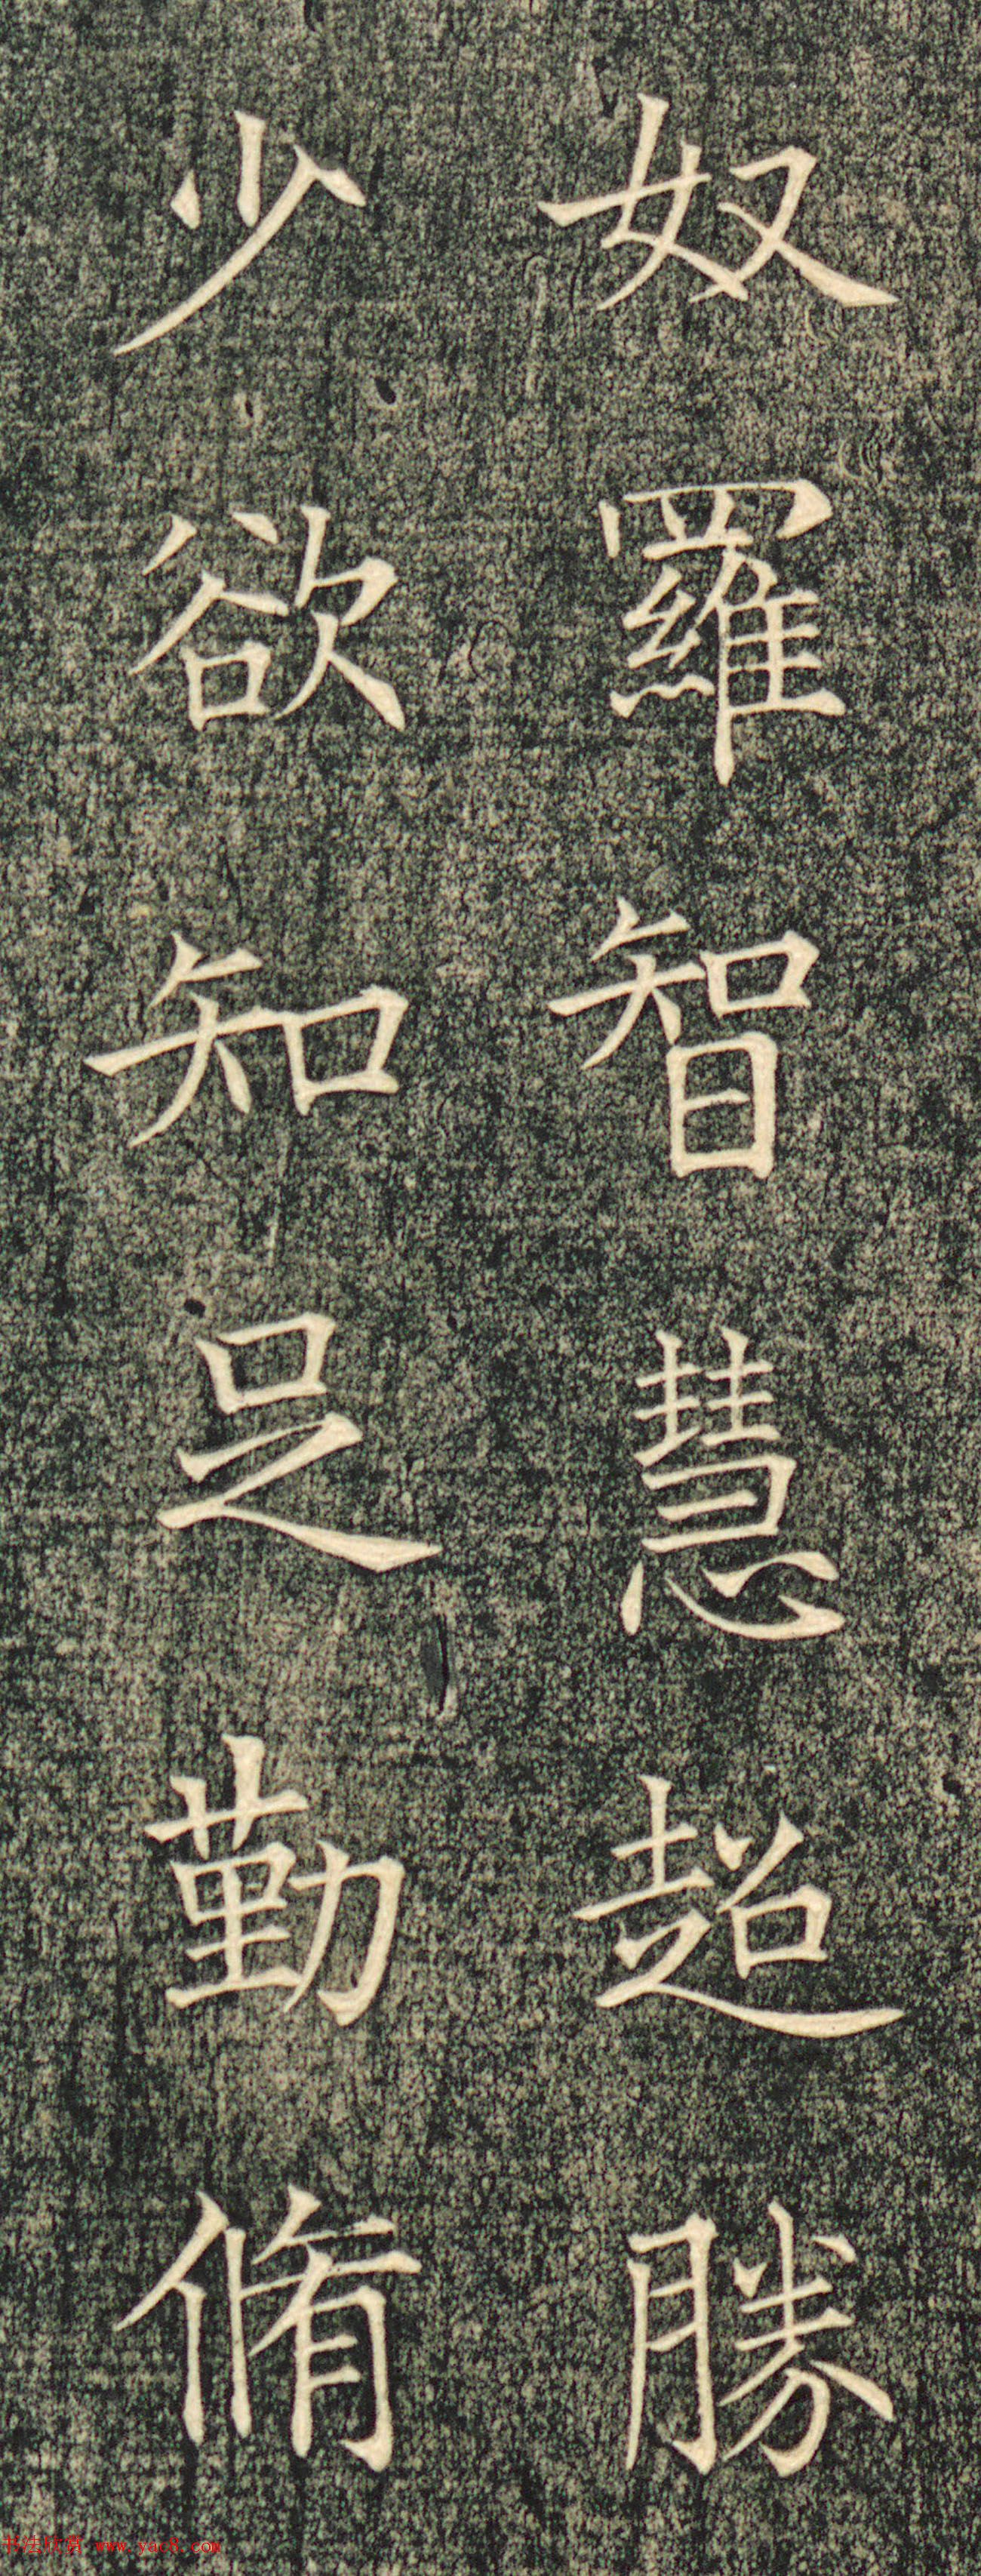 奴羅智慧超勝
少欲知足勤脩
书法欣赏 www.yac8.com